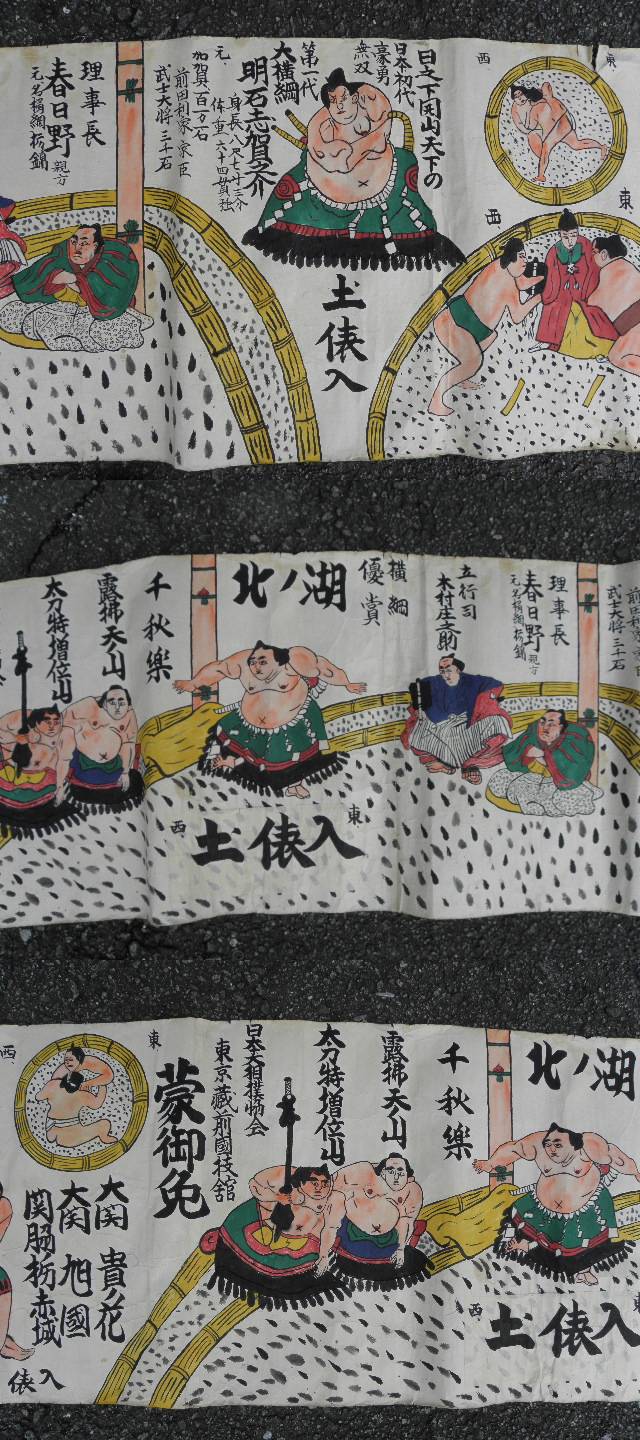 東
西
東
西
日之下開山天下の
日本初代
豪勇
無双
第一代
大横綱
明石志賀之介
身長八尺七寸三分
体重六十四貫
元
加賀百万石
前田利家家臣
武士大将三千石
土俵入
理事長
春日野親方
元名横綱栃錦
武士大将三千石
理事長
春日野親方
元名横綱栃錦
立行司
木村庄之助
横綱
優賞
北ノ湖
千秋樂
露拂天ノ山
太刀特増位山
東
西
土俵入
北ノ湖
千秋樂
露拂天ノ山
太刀特増位山
日本大相撲協会
東京蔵前國技舘
蒙御免
東
西
大関 貴ノ花
大関 旭國
関脇栃赤城
東
西
土俵入
俵入